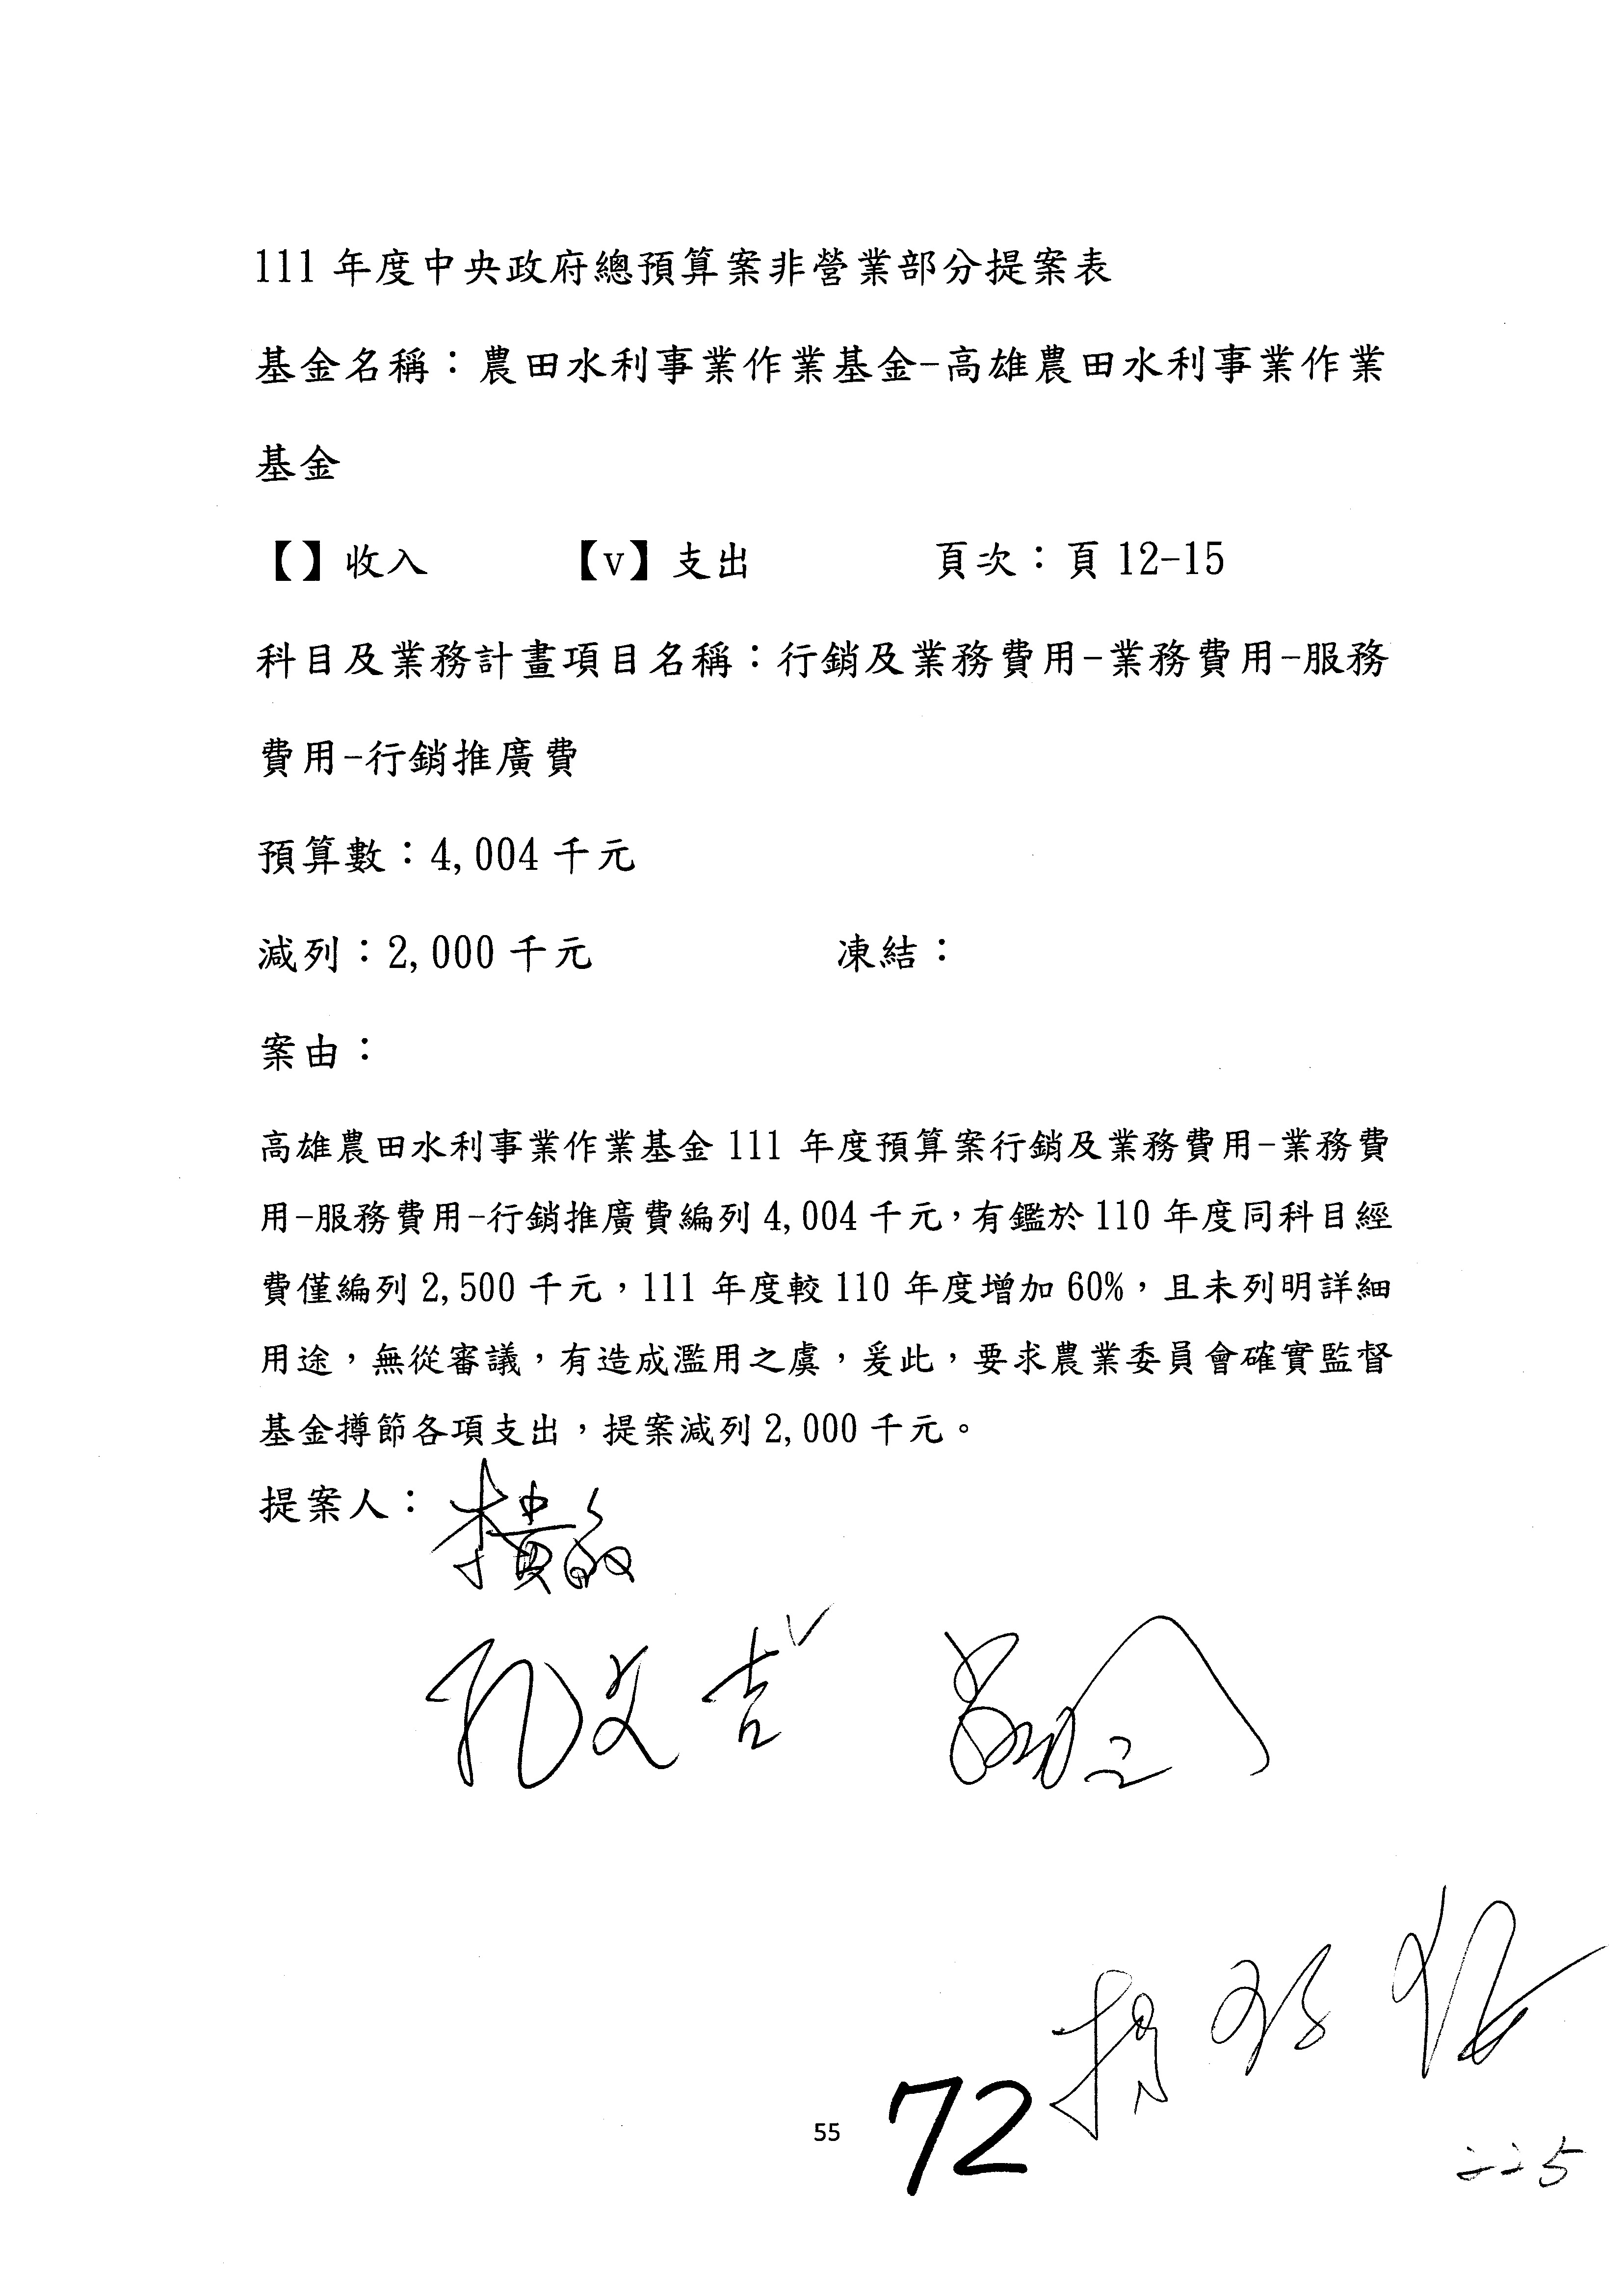 111 年度中央政府總預算案非營業部分提案表
基金名稱：農田水利事業作業基金-高雄農田水利事業作業
基金
【】收入 【v】支出 頁次：頁 12-15
科目及業務計畫項目名稱：行銷及業務費用-業務費用-服務
費用-行銷推廣費
預算數：4,004 千元
減列：2,000 千元 凍結：
案由：
高雄農田水利事業作業基金 111 年度預算案行銷及業務費用-業務費
用-服務費用-行銷推廣費編列 4,004 千元，有鑑於 110 年度同科目經
費僅編列 2,500 千元，111 年度較 110 年度增加 60%，且未列明詳細
用途，無從審議，有造成濫用之虞，爰此，要求農業委員會確實監督
基金撙節各項支出，提案減列 2,000 千元。
提案人：李貴敏
孔文吉
55 72